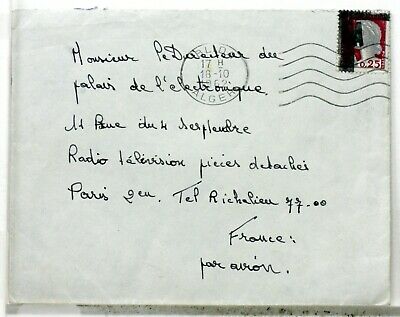 Monsieur Le Directeur du
palais de l'electronique
11 Rue du 4 Septembre
Radio télévision pièces detachées
Paris 2em. Tel Richelieu 77-00
France:
par avion.
17 H
18-10
1962
ALGER
0,25